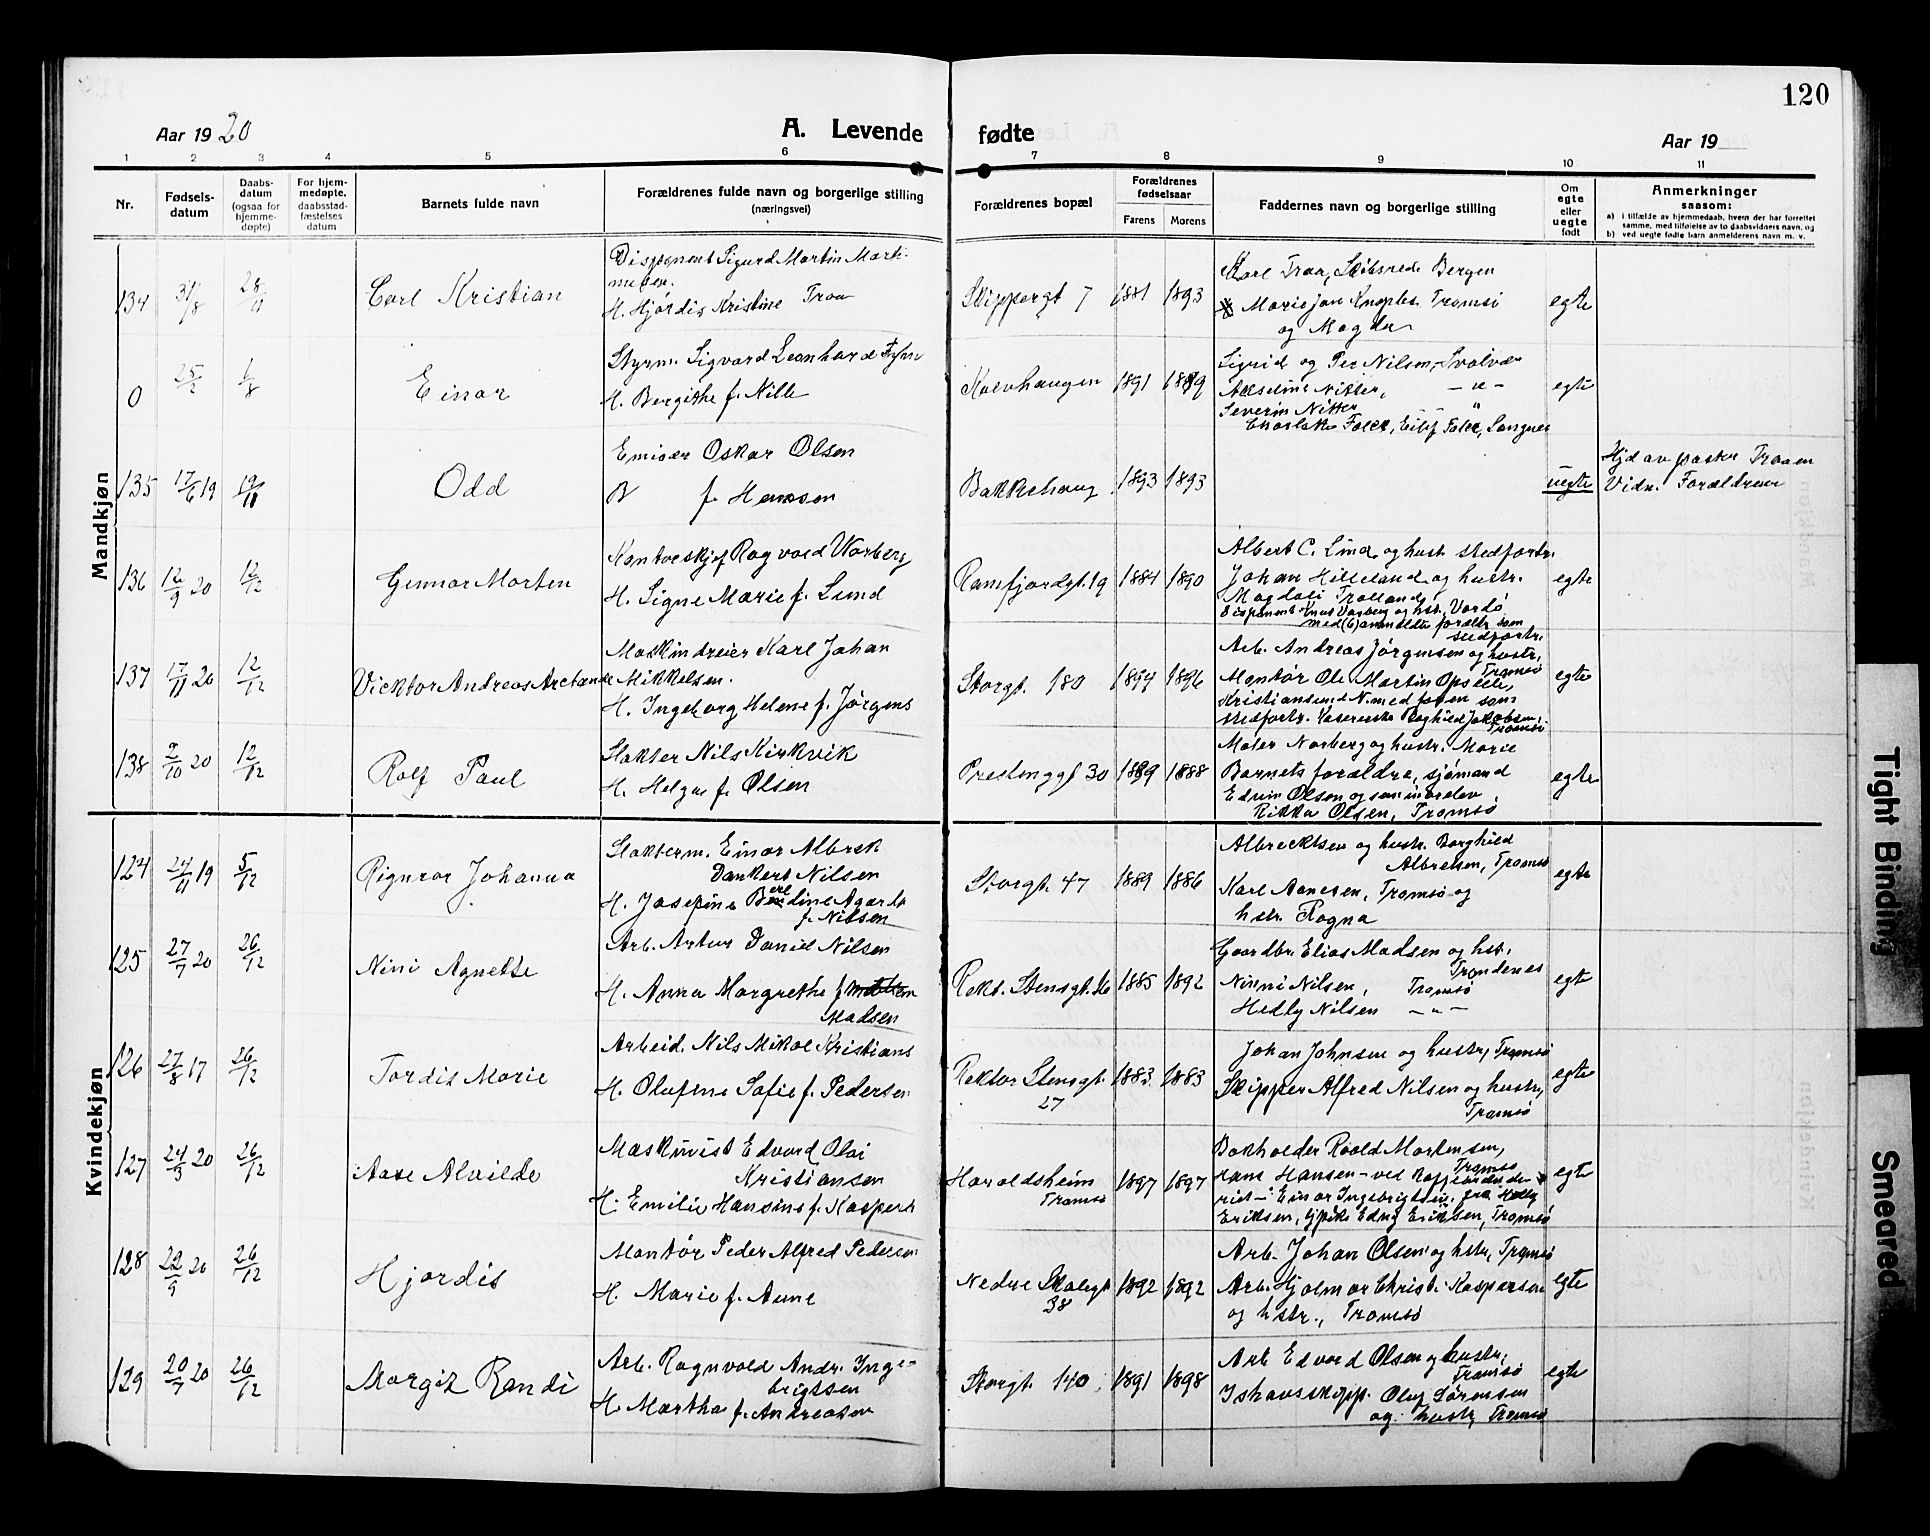 120
Aar 1920
A. Levende fødte
Aar 19
1 2 3 4 5 6 7 8 9 10 11
Nr.
Fødsels-
datum
Daabs-
datum
(ogsaa for
hjemme-
døpte)
For hjem-
medøpte,
daabsstad-
fæstelses
datum
Barnets fulde navn
Forældrenes fulde navn og borgerlige stilling
(næringsvei)
Forældrenes bopæl
Forældrenes
fødselsaar
Farens
Morens
Faddernes navn og borgerlige stilling
Om
egte
eller
uegte
født
Anmerkninger
saasom:
a) i tilfælde av hjemmedaab, hvem der har forrettet
samme, med tilføielse av to daabsvidners navn, og
b) ved uegte født barn anmelderens navn m. v.
Mandkjøn
134 31/8 28/11
Carl Kristian
Disponent Sigurd Martin Marti-
nusen.
H. Hjørdis Kristine Traa
Skippergt 7 1881 1893
Karl Traa, Skibsred. Bergen
Marie Jan Tromsø
og Magda
egte
0 25/2 1/8
Einar
Styrm. Sigvard Leonhard
H. Bergithe f.
1891 1889
Sigrid og Per Nilsen, Svolvær
Nitter, — " —
Severin Nitter — "
egte
135 17/6 19 19/11
Odd
Emisær Oskar Olsen
B f. Hansen
Bakkehaug 1893 1893
uegte
Hjd av pastor Traaen
Vidn. Forældrene
136 12/9 20 12/12
Gunnar Morten
Kontorskjef Ragvald Warberg
H. Signe Marie f. Lund
Ramfjordgt. 19 1884 1890
Albert C. Lind og hust. stedfortr.
Johan Hilleland og hustr.
Disponent Knut Varberg og hst. Vardø
med (6) anmeldte forældr. som
stedfortr.
egte
137 17/11 20 12/12
Vicktor Andreas Arctande
Maskindreier Karl Johan
Mikkelsen.
H. Ingeborg Helene f. Jørgens
Storgt. 180 1894 1896
Arb. Andreas Jørgensen og hustr.
Tromsø
Montør Ole Martin Opseth,
Kristiansund N. med faren som
stedfortr. Raghild Jakobsen,
Tromsø.
egte
138 9/10 20 12/12
Rolf Paul
Slakter Nils Kirkvik
H. Helga f. Olsen
Prestenggt 30 1889 1888
Maler Norberg og hustr. Marie
Barnets forældre, sjømand
Edvin Olsen og seminarelev
Rikka Olsen, Tromsø
egte
Kvindekjøn
124 24/11 19 5/12
Rignror Johanna
Slakterm. Einar Albrek
Dankert Nilsen
H. Josefine Berel­dine Agarte
f. Nilsen
Storgt. 47 1889 1886
Albrecktsen og hustr. Borghild
Albretsen, Tromsø
Karl Aanesen, Tromsø og
hstr. Ragna
egte
125 27/7 20 26/12
Nini Agnette
Arb. Artur Daniel Nilsen
H. Anna Margrethe f.
Madsen
Rekt. Stensgt. 1885 1892
Gaardbr. Elias Madsen og hst.
Trondenes
Ninni Nilsen, Tromsø
Hedly Nilsen — " —
egte
126 27/8 17 26/12
Tordis Marie
Arbeid. Nils Mikal Kristians
H. Olufine Sofie f. Pedersen
Rektor Stensgt.
27
1883 1883
Johan Johnsen og hustr, Tromsø
Skipper Alfred Nilsen og hustr,
Tromsø
egte
127 24/3 20 26/12
Aase Alvilde
Maskinist Edvard Olai
Kristiansen
H. Emilie Hansine f. Kaspers
Haroldsheim
Tromsø
1897 1897
Bokholder Roald Mortensen,
Tromsø
Hans Hansen — ved
Einar Ingebrigtsen,
Eriksen, frøken Edny Eriksen, Tromsø
egte
128 22/9 20 26/12
Hjørdis
Montør Peder Alfred Pedersen
H. Marie f. Aune
Nedre Skolegt
38
1892 1892
Arb. Johan Olsen og hstr, Tromsø
Arb. Hjalmar Christ. Kaspersen
og hstr., Tromsø
egte
129 20/7 20 26/12
Margit Randi
Arb. Ragnvald Andr. Inge-
brigtsen
H. Martha f. Andreasen
Storgt. 140 1891 1898
Arb Edvard Olsen og hustr,
Tromsø
Ishavsskipp. Oluf Sørensen
og hustr, Tromsø
egte
Tight Binding
Smeared